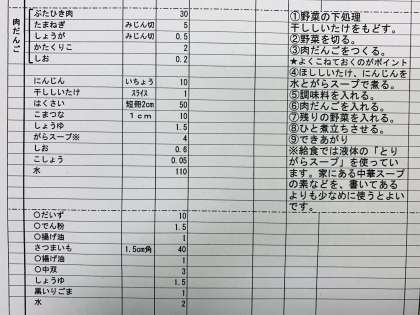 肉だんご
ぶたひき肉 30
たまねぎ みじん切 5
しょうが みじん切 0.5
かたくりこ 2
しお 0.2
にんじん いちょう 10
干ししいたけ スライス 1
はくさい 短冊2cm 50
こまつな 1cm 10
しょうゆ 1.5
がらスープ※ 4
しお 0.6
こしょう 0.05
水 110
○だいず 10
○でん粉 1.5
○揚げ油 1
さつまいも 1.5cm角 40
○揚げ油 1
○中双 3
しょうゆ 1.5
黒いりごま 1
水 2
①野菜の下処理
干ししいたけをもどす。
②野菜を切る。
③肉だんごをつくる。
★よくこねておくのがポイント
④ほししいたけ、にんじんを
水とがらスープで煮る。
⑤調味料を入れる。
⑥肉だんごを入れる。
⑦残りの野菜を入れる。
⑧ひと煮立ちさせる。
⑨できあがり
※給食では液体の「とり
がらスープ」を使ってい
ます。家にある中華スープ
の素などを、書いてある
よりも少なめに使うとよい
です。